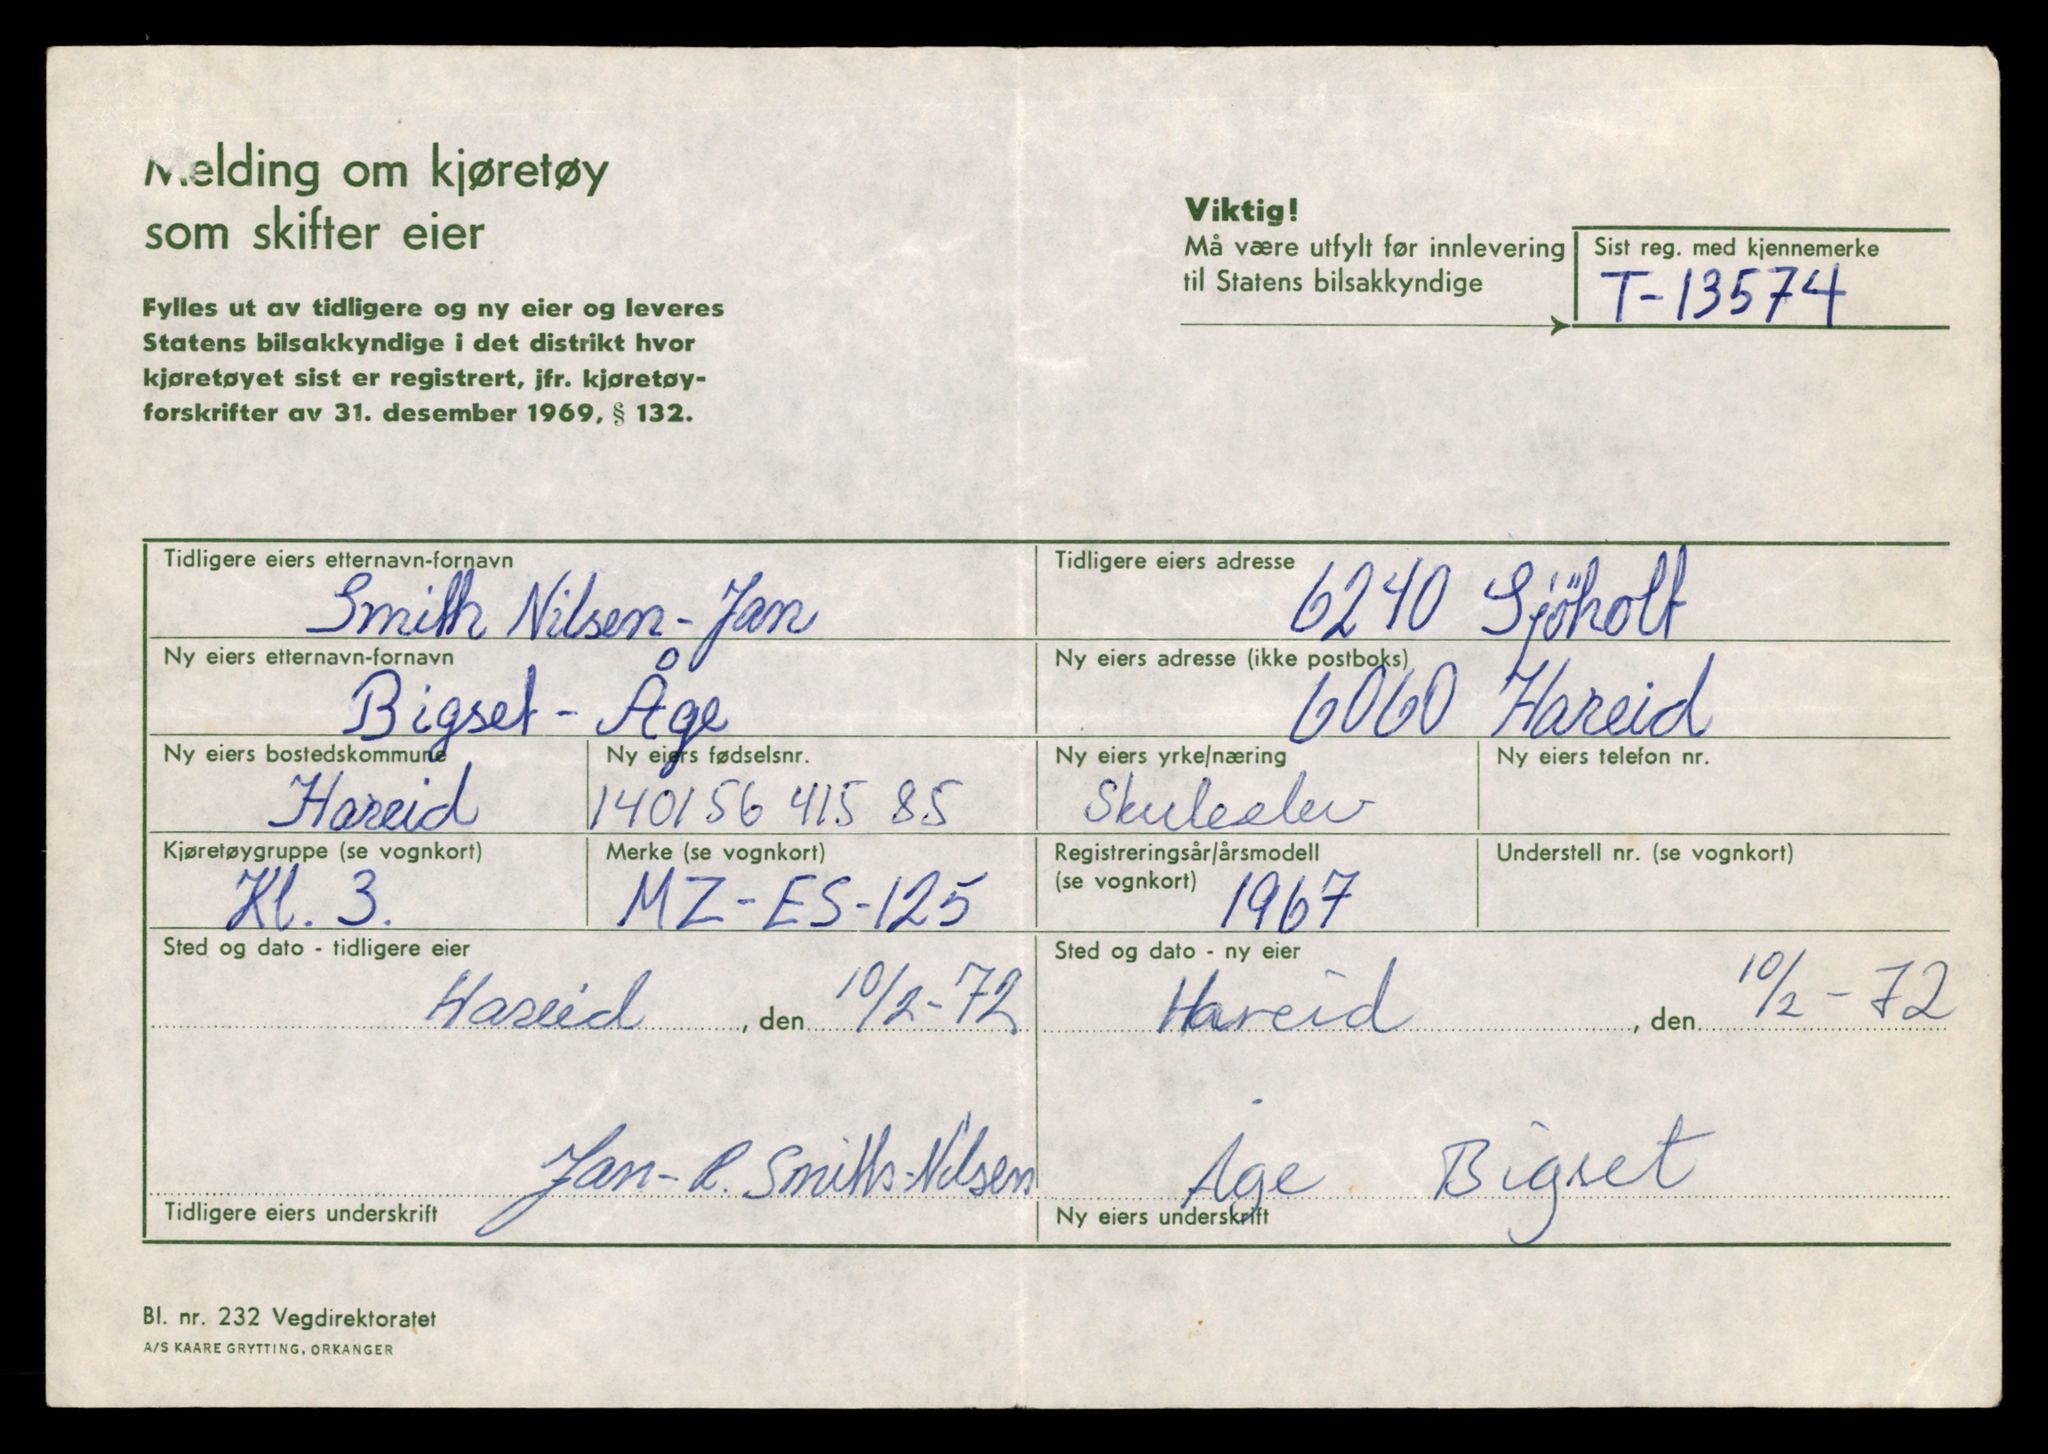 Melding om kjøretøy
som skifter eier
Fylles ut av tidligere og ny eier og leveres
Statens bilsakkyndige i det distrikt hvor
kjøretøyet sist er registrert, jfr. kjøretøy-
forskrifter av 31. desember 1969, § 132.
Viktig!
Må være utfylt før innlevering
til Statens bilsakkyndige
Sist reg. med kjennemerke
T-13574
Tidligere eiers etternavn-fornavn
Smith Nilsen-Jan
Tidligere eiers adresse
6240 Sjöholt
Ny eiers etternavn-fornavn
Bigset - Åge
Ny eiers adresse (ikke postboks)
6060 Hareid
Ny eiers bostedskommune
Hareid
Ny eiers fødselsnr.
140156 415 85
Ny eiers yrke/næring
Skuleelev
Ny eiers telefon nr.
Kjøretøygruppe (se vognkort)
Kl. 3.
Merke (se vognkort)
MZ-ES-125
Registreringsår/årsmodell
(se vognkort) 1967
Understell nr. (se vognkort)
Sted og dato - tidligere eier
Hareid, den 10/2-72
Sted og dato - ny eier
Hareid, den 10/2-72
Jan-R. Smith-Nilsen
Tidligere eiers underskrift
Åge Bigset
Ny eiers underskrift
Bl. nr. 232 Vegdirektoratet
A/S KAARE GRYTTING, ORKANGER